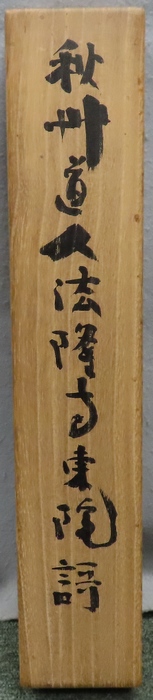 秋艸道人法隆寺東院謌